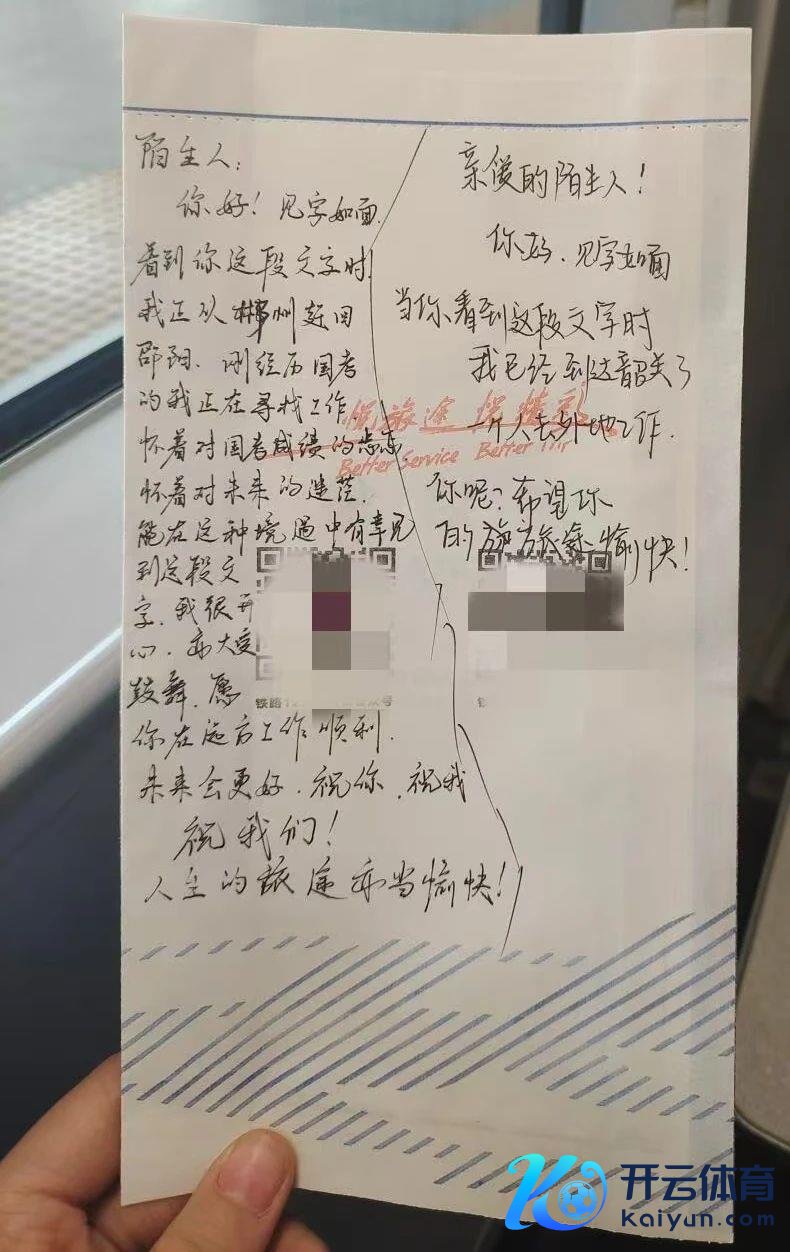 陌生人:
你好! 见字如面.
看到你这段文字时.
我正从郴州赶回
邵阳. 刚经历国考
的我正在寻找工作.
怀着对国考成绩的忐忑
怀着对未来的迷茫.
能在这种境遇中有幸见
到这段文
字. 我很开
心. 亦大受
鼓舞. 愿
你在远方工作顺利.
未来会更好. 祝你. 祝我
祝我们!
人生的旅途亦当愉快!
亲爱的陌生人!
你好. 见字如面
当你看到这段文字时
我已经到达韶关了
一个人去外地工作.
你呢? 希望你
的旅途愉快!
悦旅途 悦精彩
Better Service Better Trip
铁路12 号
铁
开云体育
Kaiyun.com